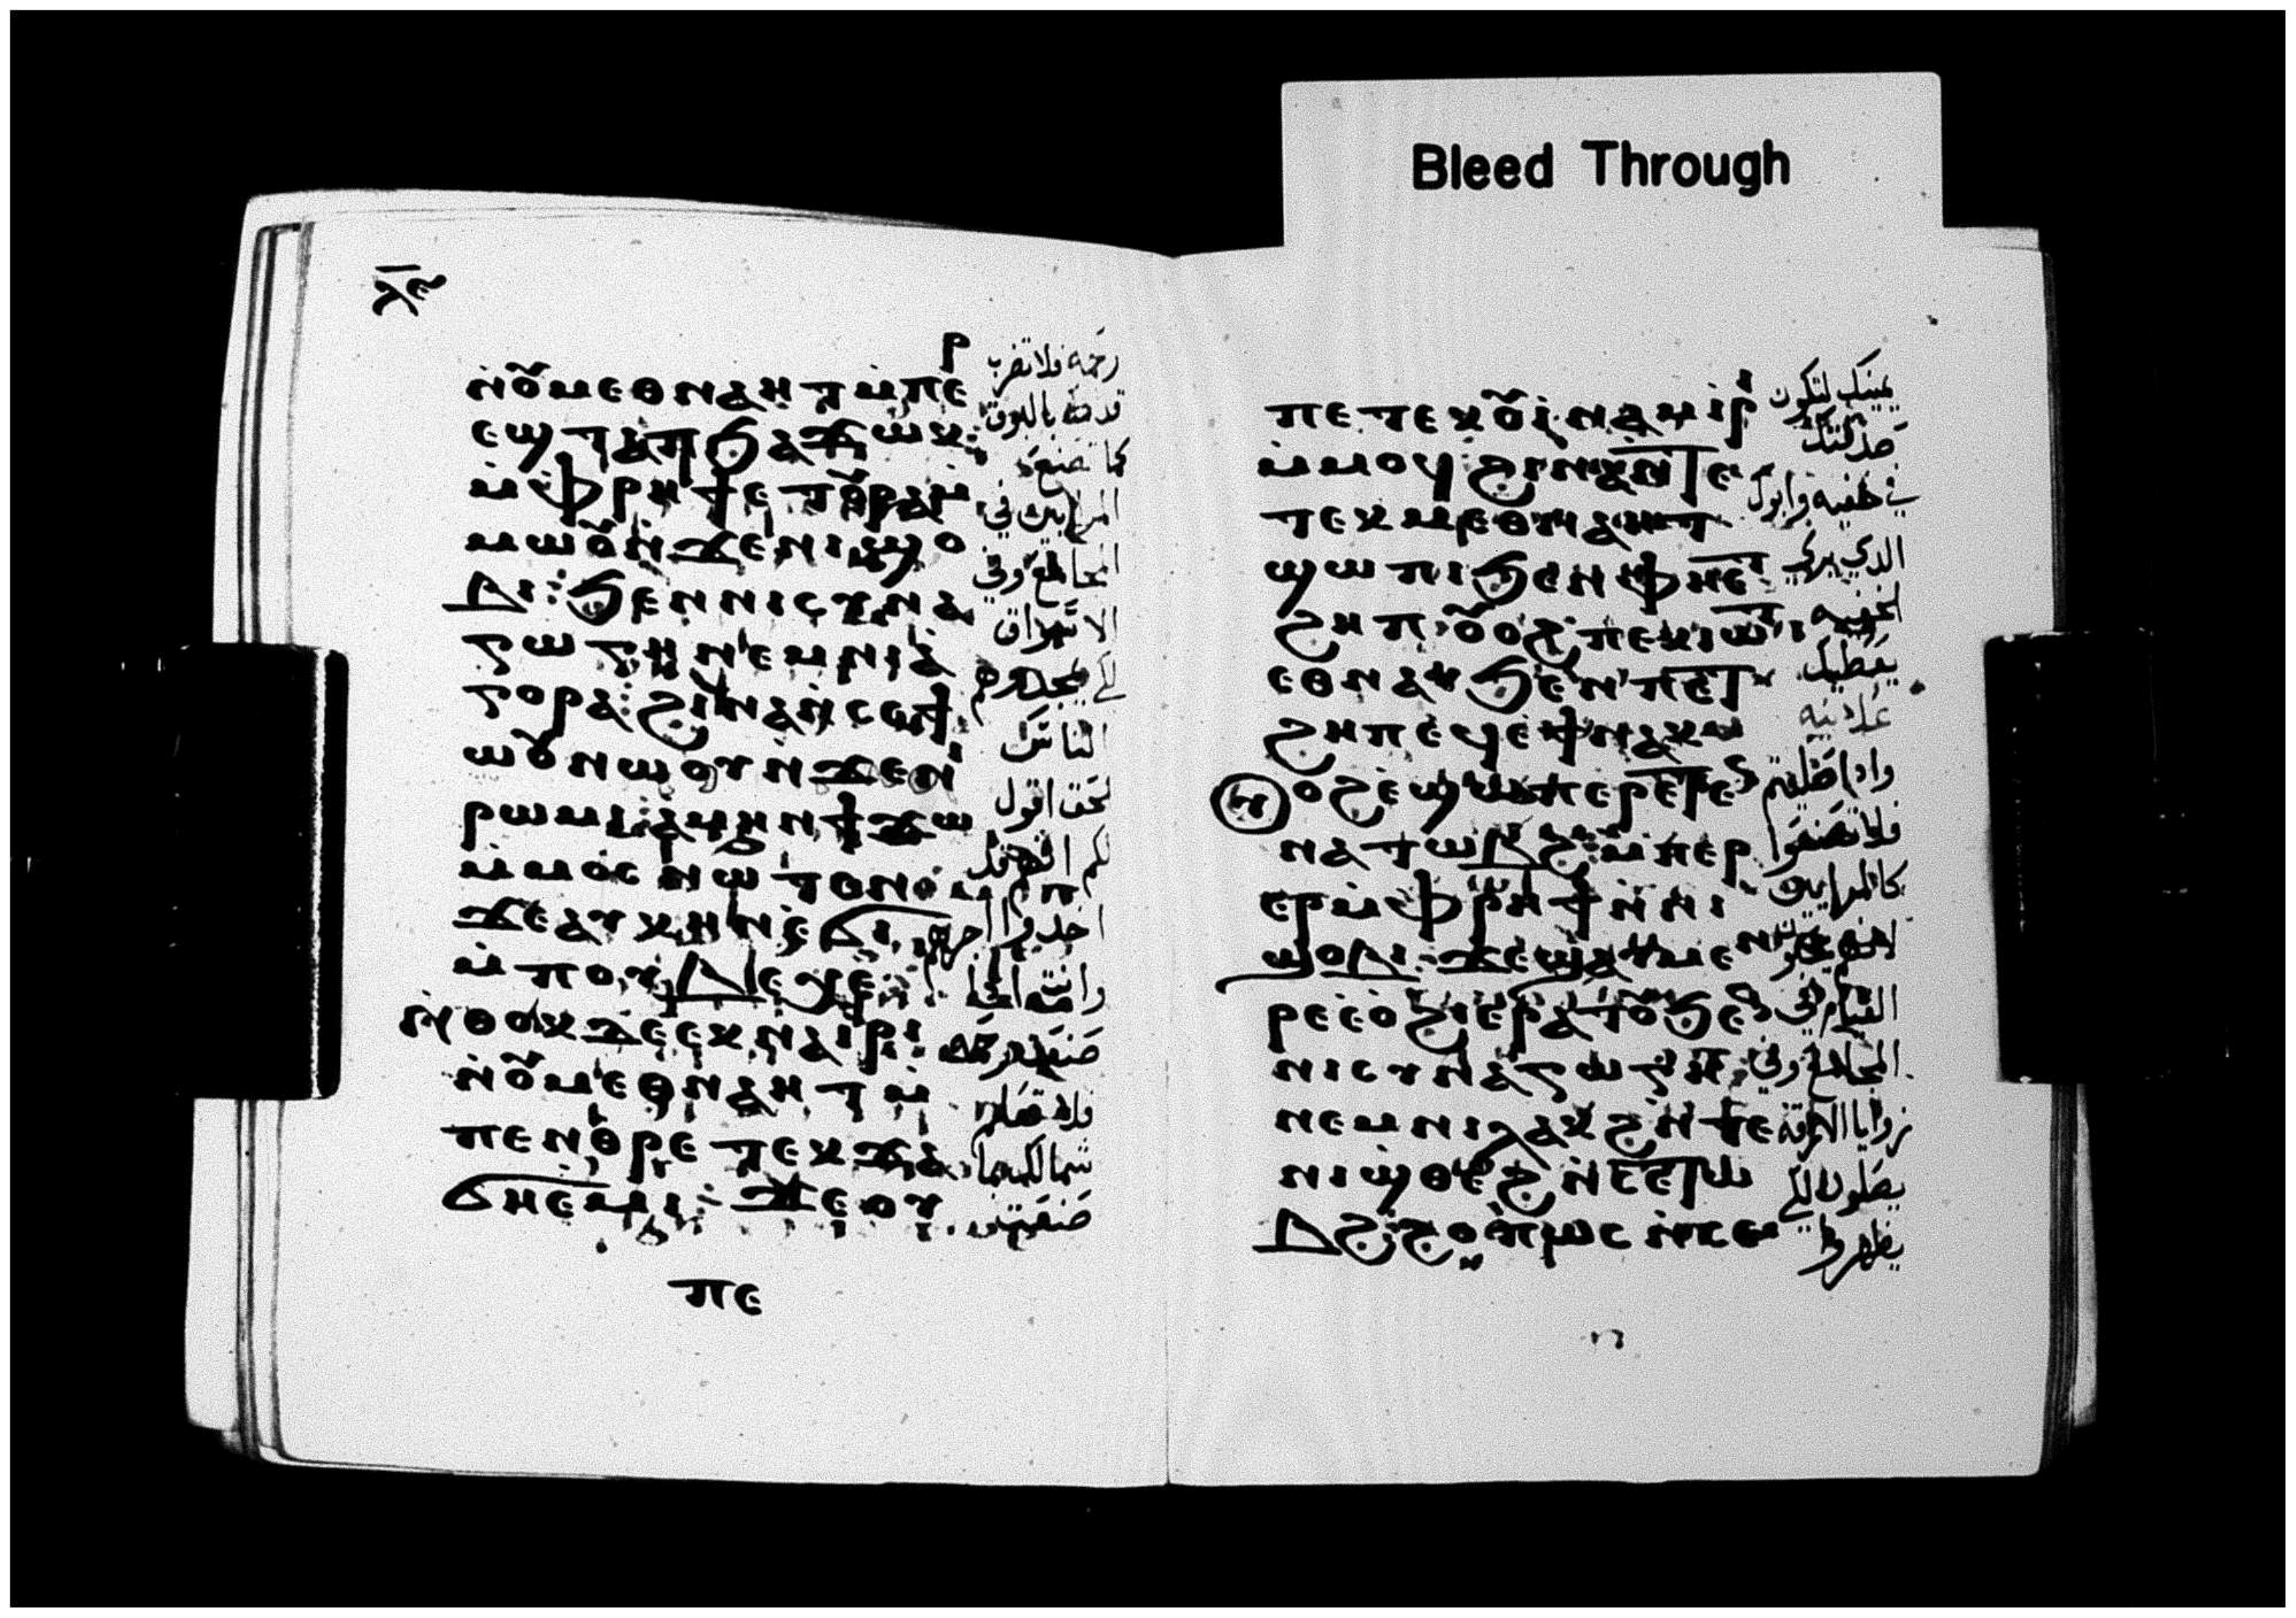 ⲗ̅ⲉ
ⲛ̀ⲟⲩⲙⲉⲑⲛⲁⲏⲧ ⲙ̀ⲡⲉⲣ
ⲉϣⲧⲁⲡ ϧⲁϫⲱⲕ:
ⲙ̀ⲫⲣⲏϯ ⲉⲧⲟⲩⲣⲁ ⲙ̀
ⲙⲱⲟⲩ ⲛ̀ϫⲉ ⲛⲓϣⲟ
ⲃⲓ: ϧⲉⲛ ⲛⲓⲥⲩⲛⲁ
ⲅⲱⲅⲏ ⲛⲉⲙ ⲛⲓⲁ̀
ⲅⲟⲣⲁ: ϩⲓⲛⲁ ⲛ̀ⲥⲉϯ
ⲱⲟⲩ ⲛⲱⲟⲩ ⲛ̀ϫⲉ ⲛⲓ
ⲣⲱⲙⲓ: ⲁⲙⲏⲛ ϯϫⲱ
ⲙ̀ⲙⲟⲥ ⲛⲱⲧⲉⲛ
ϫⲉ ⲁⲩⲕⲏⲛ ⲉ̀ϭⲓ
ⲙ̀ⲡⲟⲩⲃⲉⲭⲉ:
ⲛ̀ⲑⲟⲕ ⲇⲉ ⲉⲕⲛⲁⲓⲣⲓ
ⲛ̀ⲟⲩⲙⲉⲑⲛⲁⲏⲧ ⲙ̀
ⲡⲉⲛⲑⲣⲉ ⲧⲉⲕϫⲁ
ϭⲏ ⲉ̀ⲙⲓ: ϫⲉ ⲟⲩ
ⲡⲉ
رحمه فلا تضرب
قدامك بالبوق
كما تصنع
المرايين في
المجامع وفي
الاسواق
لكي يمجدهم
الناس
الحق اقول
لكم انهم قد
اخدوا اجرهم
وانت اذا
صنعت رحمه
فلا تعلم
شمالك بما
صنعت
ⲡⲉ ⲧⲉⲕⲟⲩⲓ̀ⲛⲁⲙ ⲓ̀ⲣⲓ
ⲙ̀ⲙⲟϥ: ϩⲓⲛⲁ ⲛ̀ⲧⲉ
ⲧⲉⲕⲙⲉⲑⲛⲁⲏⲧ
ϣⲱⲡⲓ ϧⲉⲛ ⲡⲉⲧ
ϩⲏⲡ: ⲟⲩⲟϩ ⲡⲉⲕⲓⲱⲧ
ⲉⲑⲛⲁⲩ ϧⲉⲛ ⲡⲉⲧ
ϩⲏⲡ ⲉϥⲉ̀ϯ ⲛⲁⲕ
ⲟϩ ⲉ̀ϣⲱⲡ ⲉⲣⲉⲧⲉⲛ
ⲛⲁⲧⲱⲃϩ: ⲙ̀ⲡⲉⲣ
ⲉⲣ ⲙ̀ⲫⲣⲏϯ ⲛ̀ⲛⲓ
ϣⲟⲃⲓ: ϫⲉ ϣⲁⲩⲙⲉⲛ
ⲣⲉ ⲉ̀ⲟ̀ϩⲓ ⲉ̀ⲣⲁⲧⲟⲩ ϧⲉⲛ
ⲛⲓⲥⲩⲛⲁⲅⲱⲅⲏ
ⲛⲉⲙ ⲛⲓⲗⲁⲕϩ ⲛ̀ⲧⲉ
ⲛⲓϣⲑⲉϩ ⲛ̀ⲥⲉⲧⲱ
ⲃϩ: ϩⲟⲡⲱⲥ ⲛ̀ⲥⲉ
يمينك لتكون
صدقتك
في خفيه وابوك
الذي يري
الخفيه
يعطيك
علانيه
واذا صليتم
فلا تصنعوا
كالمرايين
لانهم يحبوا
القيام في
المجامع وفي
زوايا الازقه
يصلون لكي
يظهروا
Bleed Through